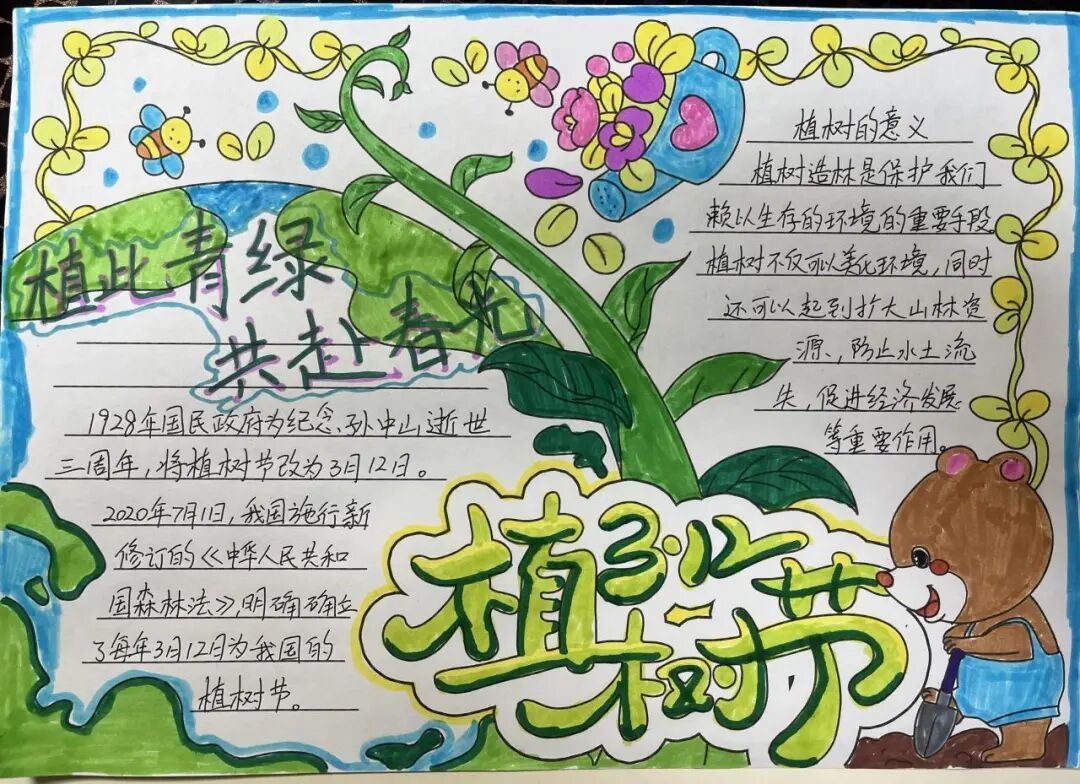 植此青绿
共赴春光
1928年国民政府为纪念孙中山逝世
三周年，将植树节改为3月12日。
2020年7月1日，我国施行新
修订的《中华人民共和
国森林法》，明确确立
了每年3月12日为我国的
植树节。
植树的意义
植树造林是保护我们
赖以生存的环境的重要手段
植树不仅可以美化环境，同时
还可以起到扩大山林资
源、防止水土流
失，促进经济发展
等重要作用。
3.12
植树节